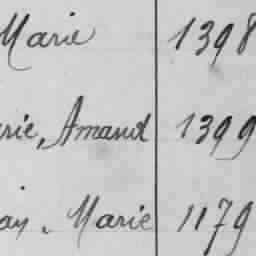 Marie 1398
rie, Amand 1399
ay, Marie 1179